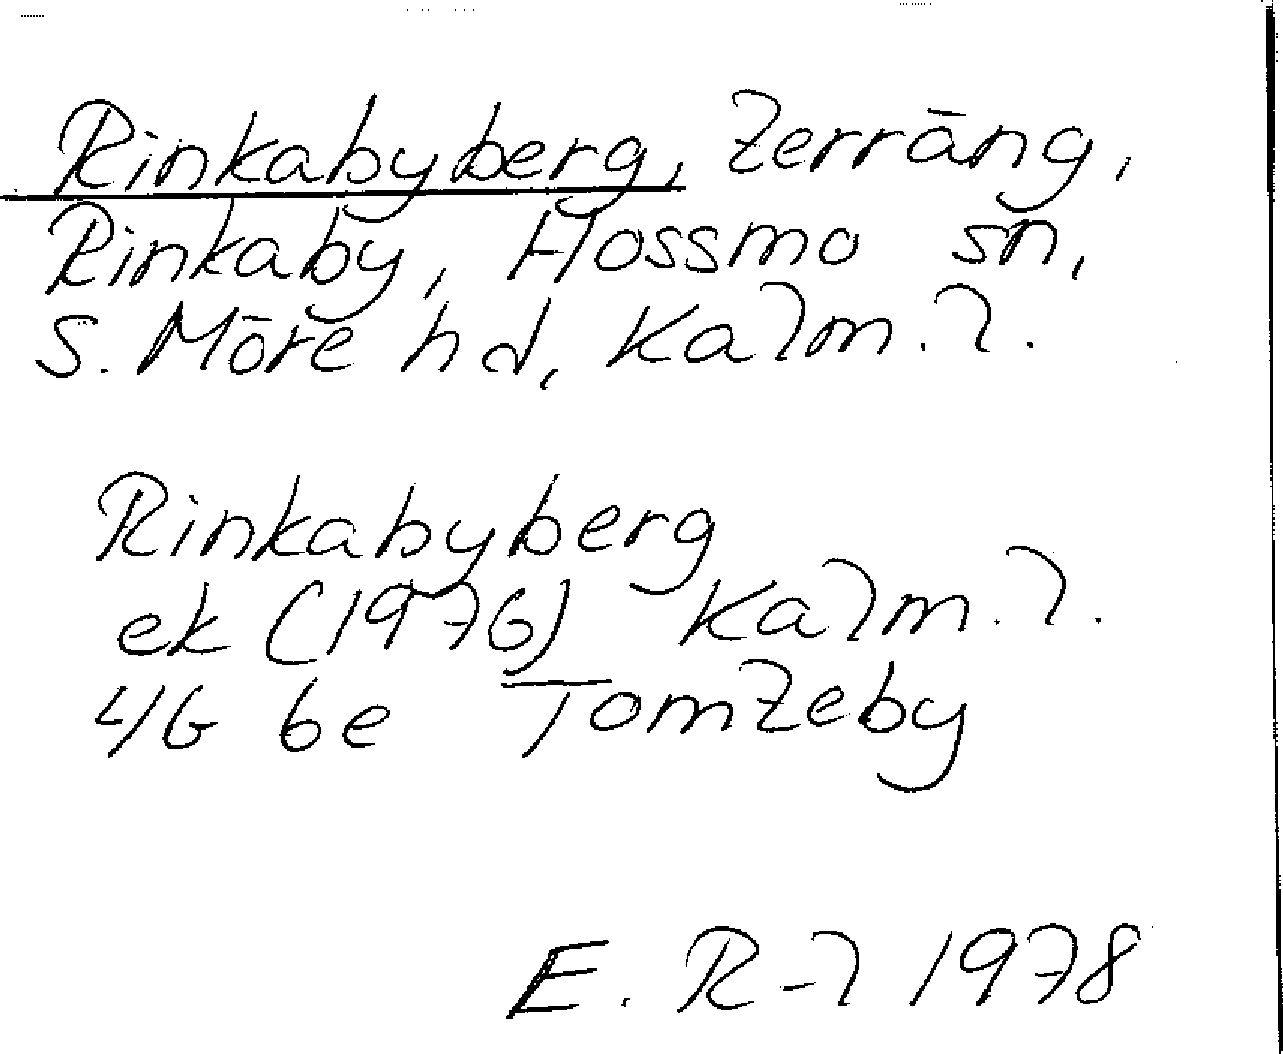 Rinkabyberg, terräng,
Rinkaby, Hossmo sn,
S. Möre hd, Kalm. l.
Rinkabyberg
ek (1976) Kalm. l.
4G 6e Tomteby
E. R-l 1978